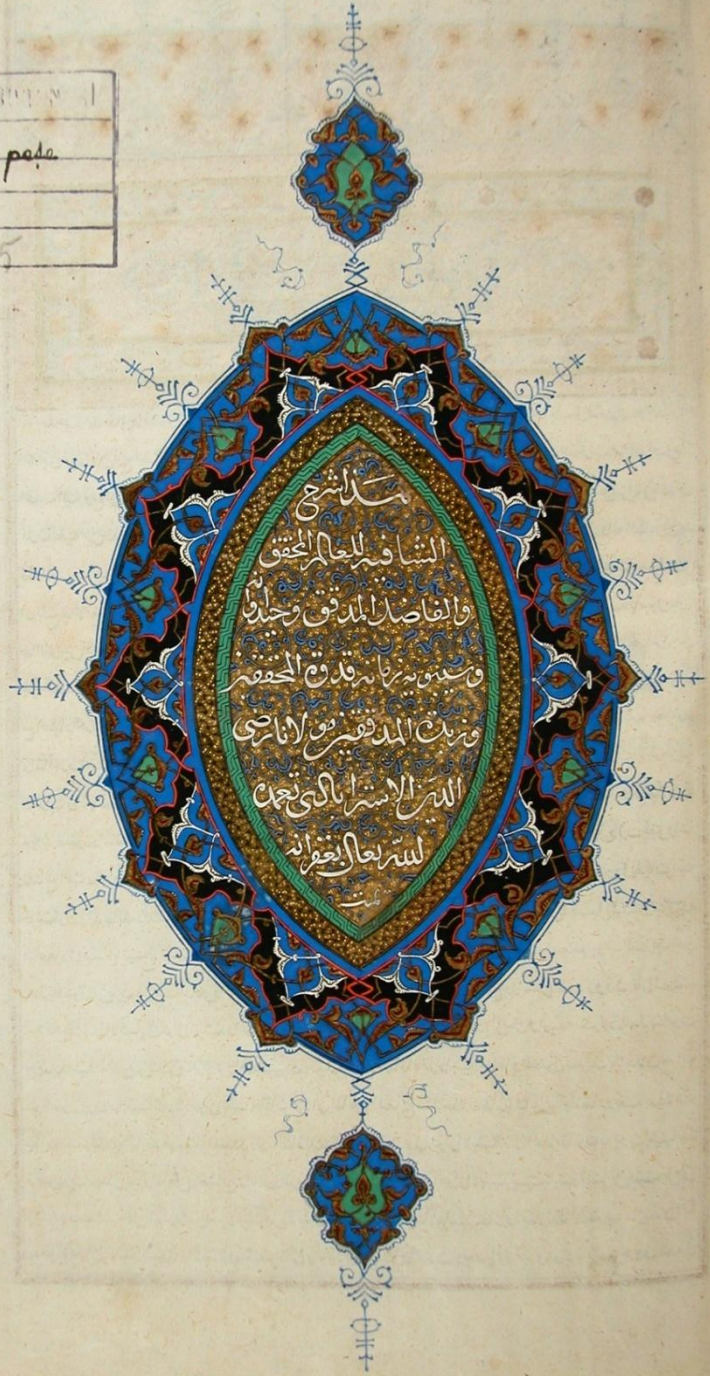 paşa
هذا شرح
الشافيه للعالم المحقق
والفاضل المدقق وحيد اوانه
وسيبويه زمانه قدوة المحققين
وزبدة المدققين مولانا رضى
الدين الاسترابادى تغمده
الله تعالى بغفرانه
تمت